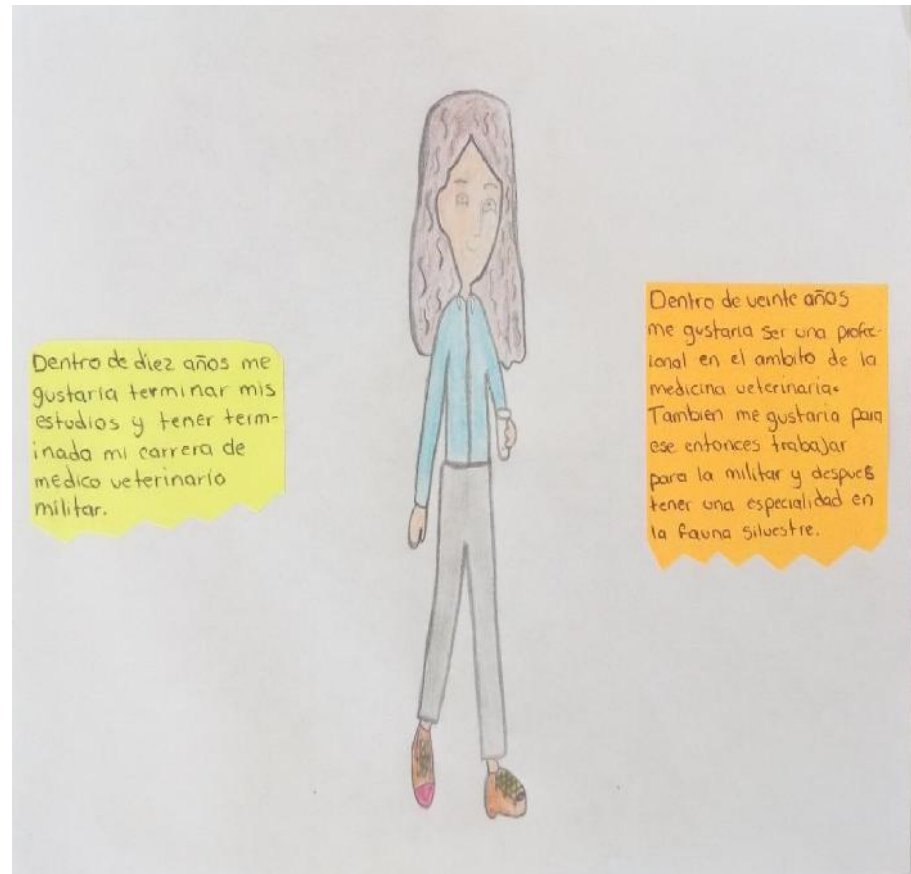 Dentro de diez años me
gustaría terminar mis
estudios y tener term-
inada mi carrera de
médico veterinario
militar.
Dentro de veinte años
me gustaria ser una profec-
ional en el ambito de la
medicina veterinaria.
Tambien me gustaria para
ese entonces trabajar
para la militar y despues
tener una especialidad en
la fauna silvestre.